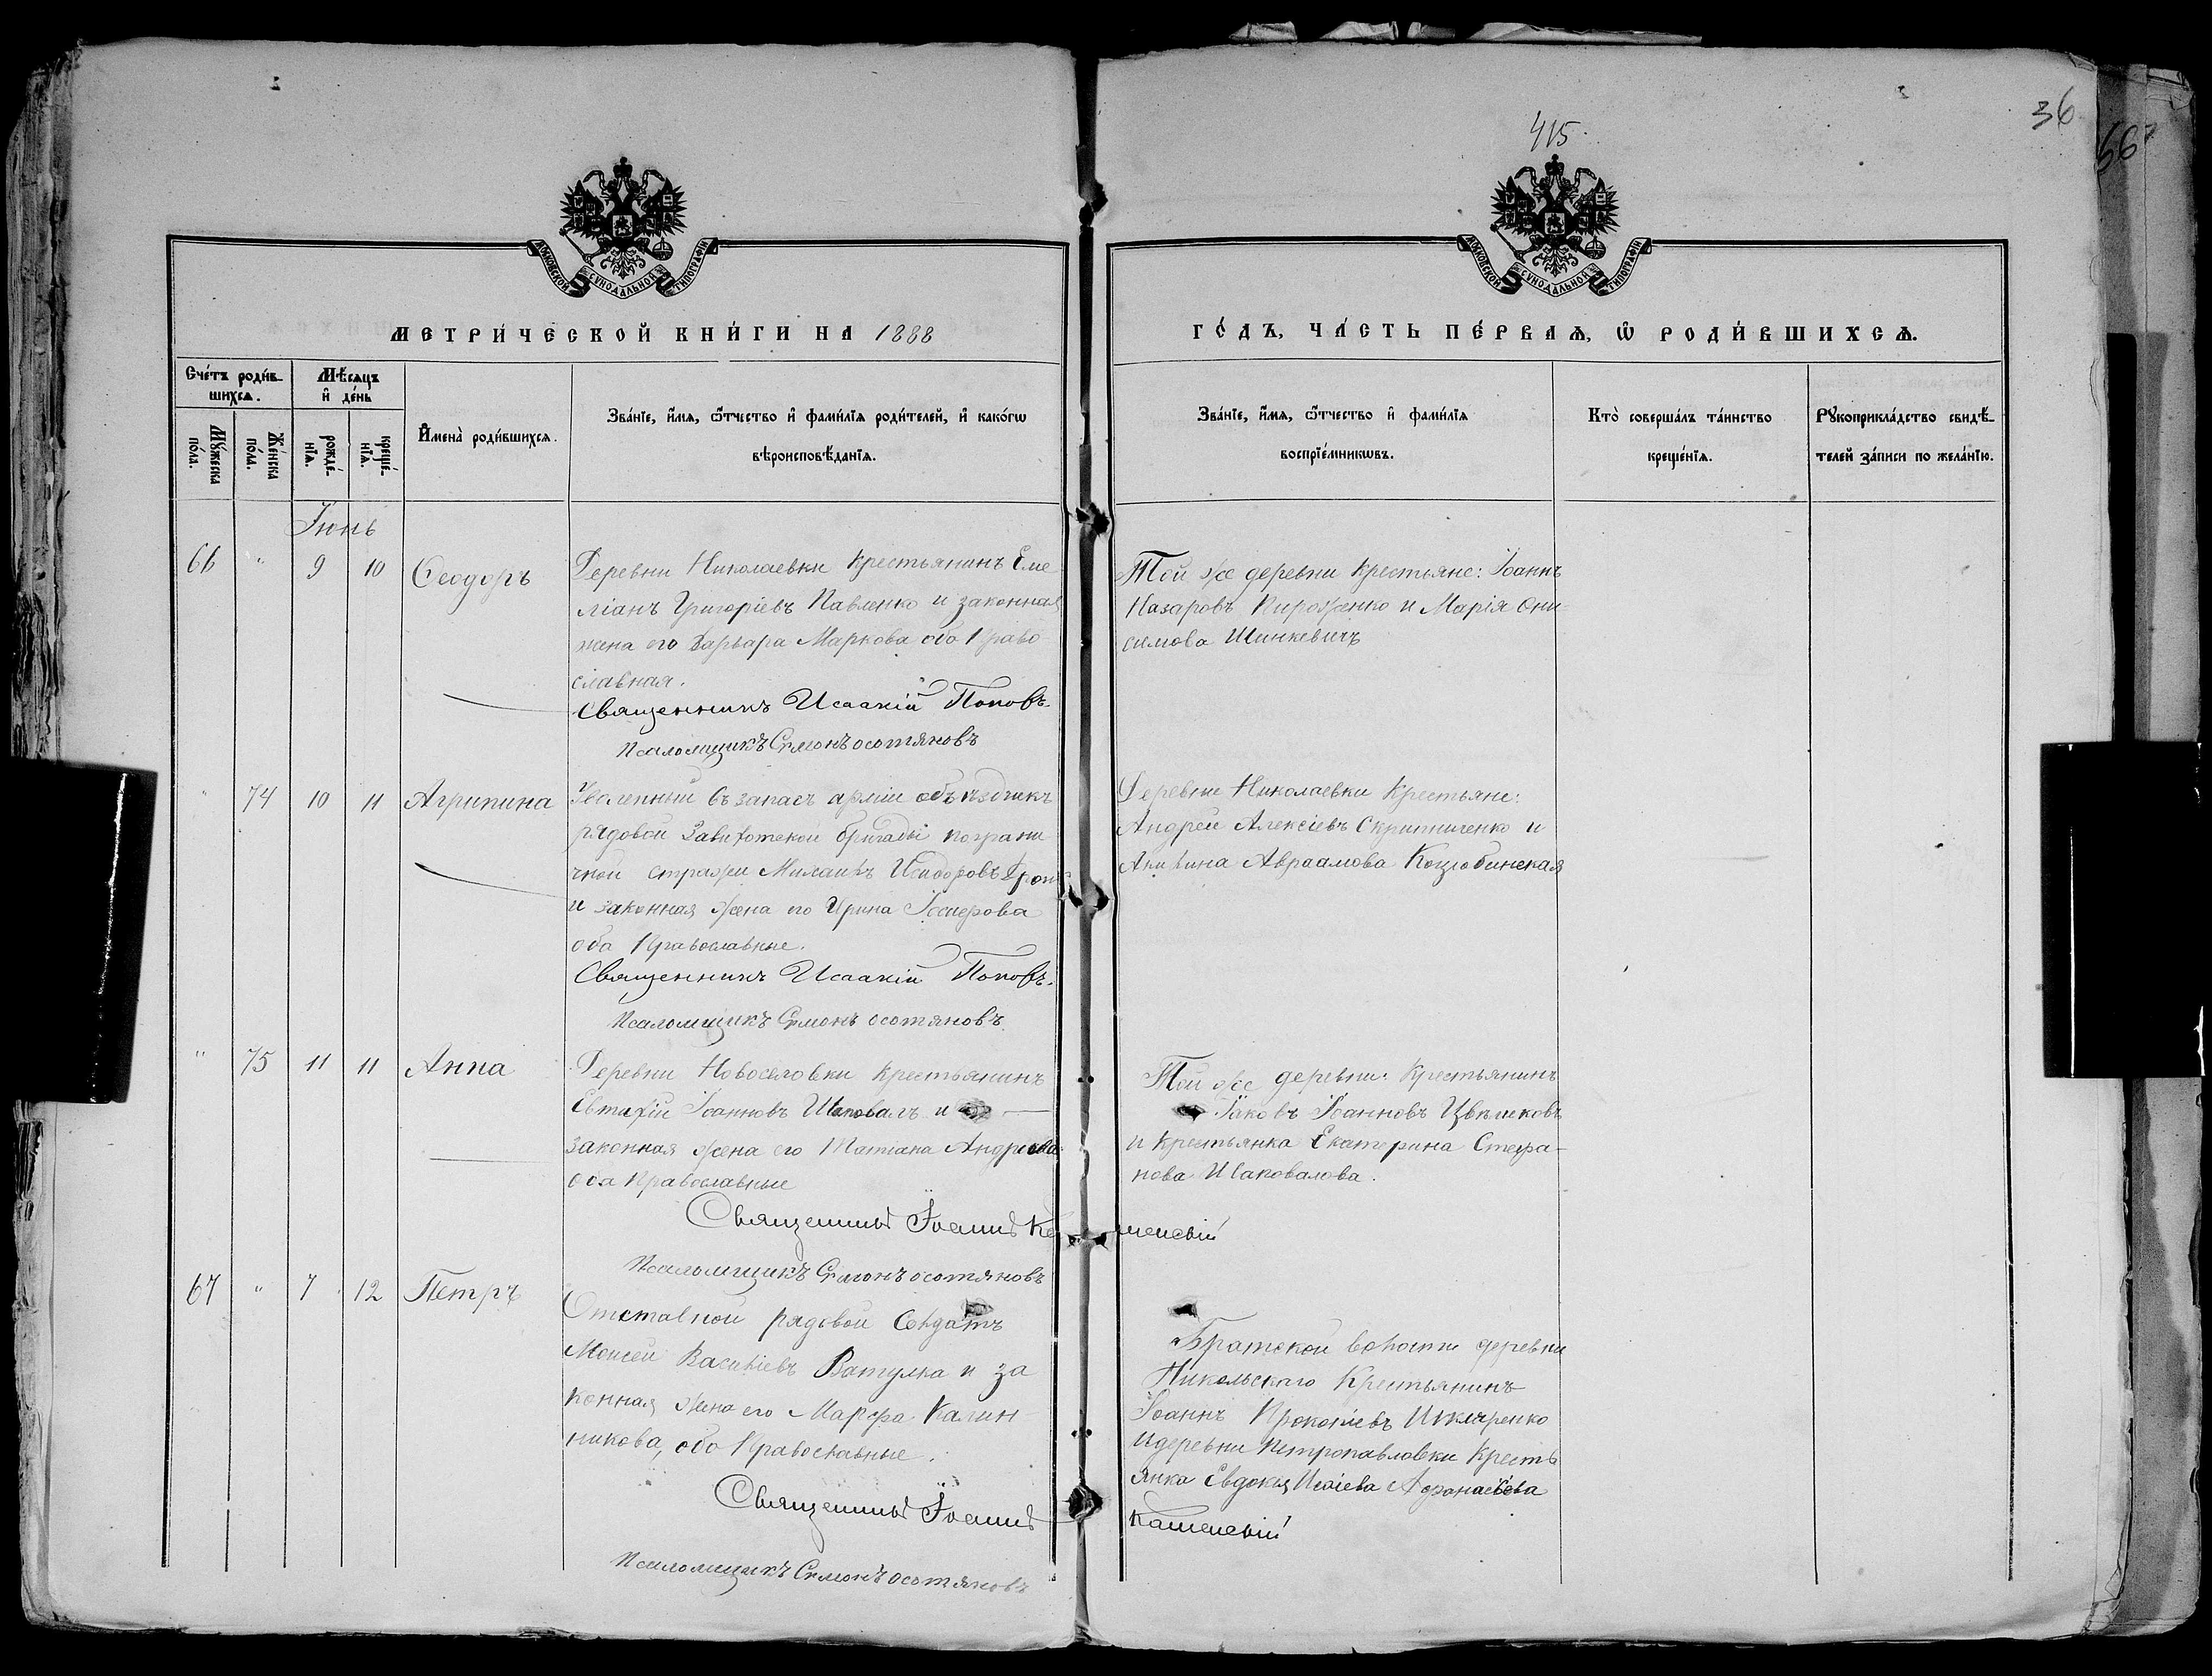 36
415.
МОСКОВСКОЙ СУНОДАЛЬНОЙ ТИПОГРАФІИ
МОСКОВСКОЙ СУНОДАЛЬНОЙ ТИПОГРАФІИ
МЕТРИ́ЧЕСКОЙ КНИ́ГИ НА 1888
ГО́ДЪ, ЧА́СТЬ ПЕ́РВАѦ, Ѡ РОДИ́ВШИХСѦ.
Сче́тъ роди́в-
шихсѧ.
Мѣ́сѧцъ
и҆ де́нь
Мꙋ́жеска
по́ла.
Же́нска
по́ла.
рожде́-
нїѧ.
креще́-
нїѧ.
И҆мена̀ роди́вшихсѧ.
Зва́нїе, и҆́мѧ, ѻ҆́тчество и҆ фами́лїѧ роди́телей, и҆ како́гѡ
вѣроисповѣ́данїѧ.
Зва́нїе, и҆́мѧ, ѻ҆́тчество и҆ фами́лїѧ
воспрїе́мникѡвъ.
Кто̀ соверша́лъ та́инство
креще́нїѧ.
Рꙋкоприкла́дство свидѣ́-
телей за́писи по жела́нїю.
Іюнь
66 " 9 10 Ѳеодоръ
Деревни Николаевки крестьянинъ Еме
ліанъ Григоріевъ Павленко и законная
жена его Варвара Маркова оба Право
славная.
Священникъ Исаакій Поповъ.
Псаломщикъ Симонъ
Той же деревни крестьяне: Іоаннъ
Назаровъ Пироженко и Марія Они-
симова Шинкевичъ
" 74 10 11 Агрипина
Уволенный въ запасъ арміи объѣздчикъ
рядовой бригады пограни
чной стражи Исидоровъ
и законная жена его Ирина
оба Православные.
Священникъ Исаакій Поповъ.
Псаломщикъ Симонъ
Деревни Николаевки Крестьяне:
Андрей Алексіевъ Скрипниченко и
Акилина Авраамова Козюбинская
" 75 11 11 Анна
Деревни Новоселовки крестьянинъ
Евтихій Іоанновъ Шаповалъ и
законная жена его Татіана Андреева
оба Православные
Священникъ Іоаннъ Каменскій
Псаломщикъ Симонъ
Той же деревни: Крестьянинъ
Іаковъ Іоанновъ
и крестьянка Екатерина Стефа-
нова Шаповалова.
67 " 7 12 Петръ
Отставной рядовой Солдатъ
Моисей Василіевъ Ватулка и за
конная жена его Марфа Калин-
никова, оба Православные.
Священникъ Іоаннъ Каменскій
Псаломщикъ Симонъ
Братской волости деревни
Никольскаго Крестьянинъ
Іоаннъ Прокопіевъ
и деревни Петропавловки Кресть
янка Евдокія Исаіева Афонасіева